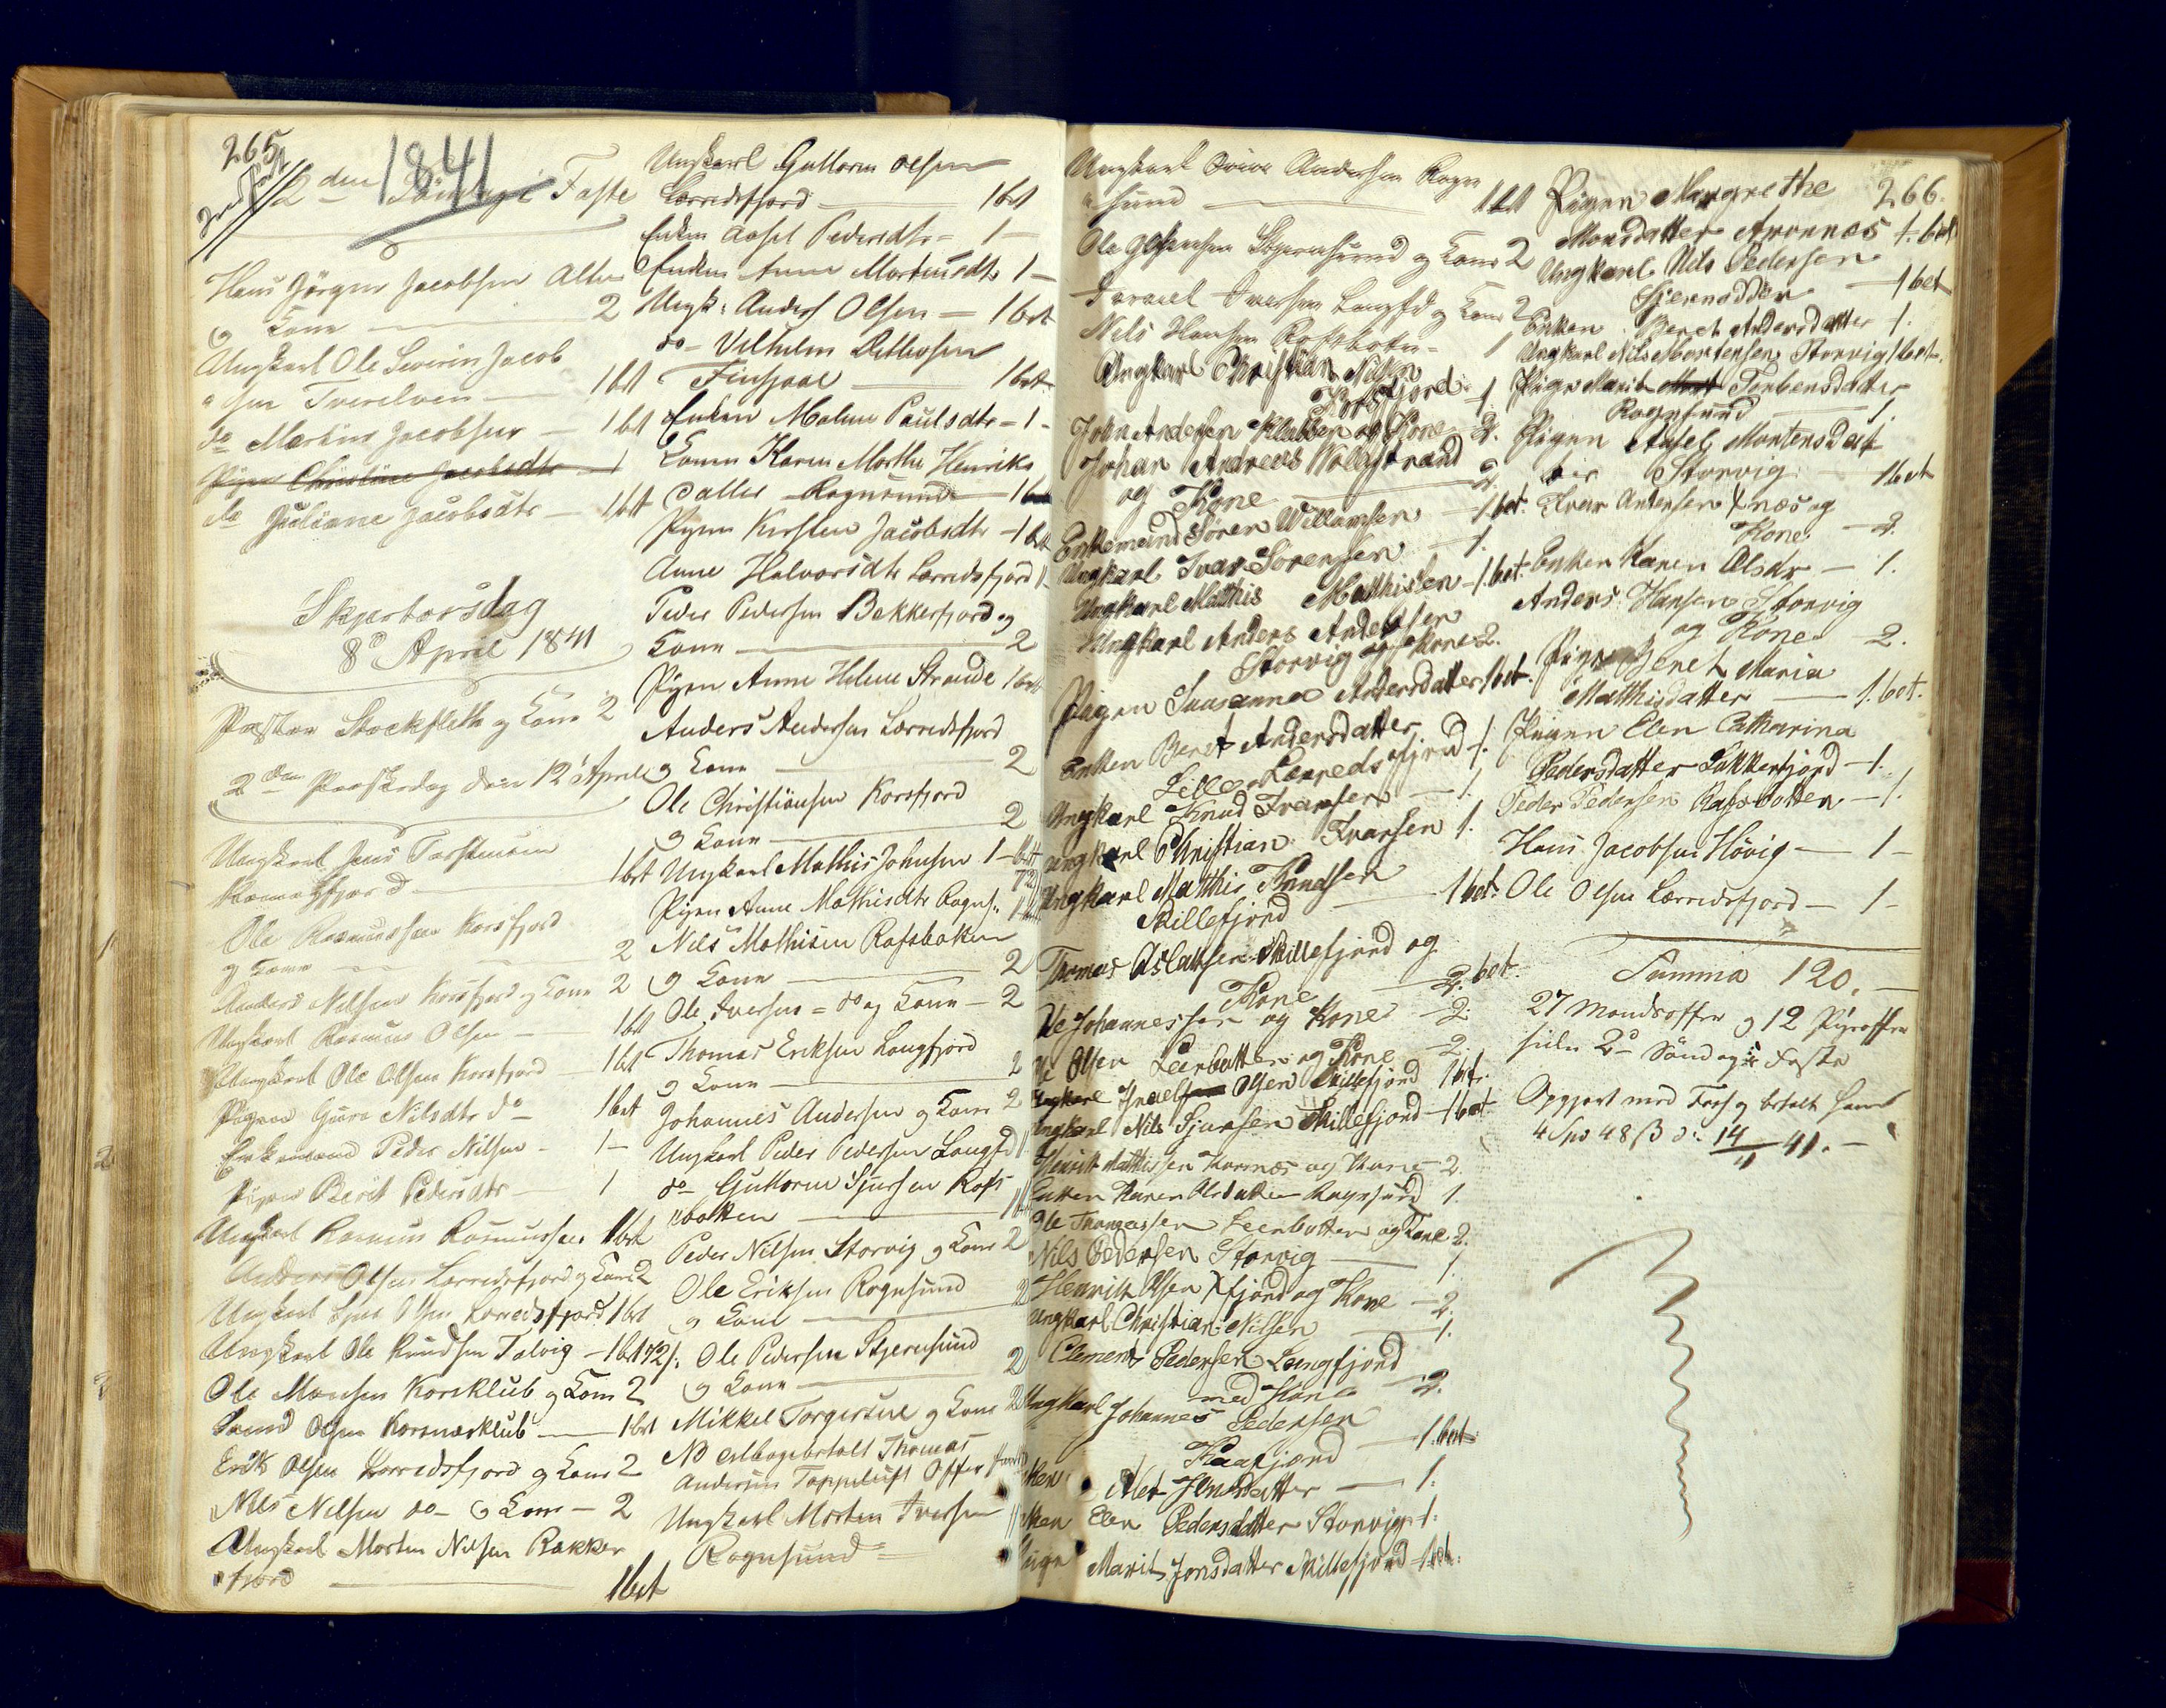 265
1841
2den Søndag i Faste
Hans Jörgen Jacobsen Alten
og Kone — 2
Ungkarl Ole Severin Jacob
"sen Tverelven — 1 bet
do Martin Jacobsen — 1 bet
Pigen Christine Jacobsdtr — 1
do Juliane Jacobsdtr — 1 bet
Skjertorsdag
8d April 1841
Pastor Stockfleth og Kone 2
2den Paaskedag den 12 April
Ungkarl Jens Torstensen
1 bet
Ole Rasmussen Korsfjord
og Kone — 2
Anders Nilsen Korsfjord og Kone 2
Ungkarl Rasmus Olsen — 1 bet
Ungkarl Ole Olsen Korsfjord — 1 bet
Pigen Guro Nilsdtr do — 1 bet
Enkemand Peder Nilsen — 1 —
Pigen Berit Pedersdtr — 1
Ungkarl Rasmus Rasmussen 1 bet
Anders Olsen Lerredsfjord og Kone 2
Ungkarl Sjur Olsen Lerredsfjord 1 bet
Ungkarl Ole Knudsen Talvig — 1 bet 72/.
Ole Monsen Korsklub og Kone 2
Olsen Korsnæsklub — 1 bet
Erik Olsen Lerredsfjord og Kone 2
Nils Nilsen do og Kone — 2
Ungkarl Morten Nilsen Bakker
"fjord — 1 bet
Ungkarl Guttorm Olsen
Lerredsfjord — 1 bet
Enken Aasel Pedersdtr — 1 —
Enken Anne Mortensdtr 1 —
Ungk: Anders Olsen — 1 bet
do Vilhelm Ditlevsen
— 1 bet
Enken Malene Paulsdtr — 1 —
Konen Karen Marthe Henriks
datter Rognsund — 1 bet
Pigen Kirsten Jacobsdtr — 1 bet
Anne Halvorsdtr Lerredsfjord 1
Peder Pedersen Bekkerfjord og
Kone — 2
Pigen Anne Helene Strande 1 bet
Anders Andersen Lerredsfjord
og Kone — 2
Ole Christiansen Korsfjord
og Kone — 2
Ungkarl Mathis Johnsen 1 — bet
72
Pigen Anne Mathisdtr Rogns. 1
Nils Mathisen Rafsbotten
og Kone — 2
Ole Iversen = do og Kone — 2
Thomas Eriksen Langfjord
og Kone — 2
Johannes Andersen og Kone 2
Ungkarl Peder Pedersen Langfd 1
do Guttorm Sjursen Rafs
"botten — 1
Peder Nilsen Storvig og Kone 2
Ole Eriksen Rognsund
og Kone — 2
Ole Pedersen Stjernsund
og Kone — 2
Mikkel Torgersen og Kone 2
NB tilbagebetalt Thomas
Andersen Toppeluft Offer
Ungkarl Morten Iversen
Rognsund =
Ungkarl Andersen Rogn
"sund — 1 bet
Ole Stjernsund og Kone 2
Iversen Langfd og Kone 2
Nils Hansen Rafsbotn — 1
Ungkarl Christian Nilsen
Korsfjord — 1.
John Andersen Klubben og Kone — 2.
Johan Andreas Wollstrand
og Kone — 2.
Enkemand Søren Willumsen — 1 bet.
Ungkarl Ivar Sørensen — 1.
Ungkarl Matthis Mathisen — 1. bet.
Ungkarl Anders Andersen
Storvig og Kone 2.
Pigen Susanna Andersdatter 1 bet.
Enken Beret Andersdatter
Lille Lerredsfjord 1.
Ungkarl Knud Ivarsen — 1.
Ungkarl Christian Ivarsen 1.
Ungkarl Matthis Knudsen
Skillefjord — 1 bet.
Thomas Aslaksen Skillefjord og
Kone — 2. bet.
Ole Johannessen og Kone — 2.
Ole Olsen Leerbotten og Kone — 2.
Ungkarl Israel Olsen Skillefjord 1 bet.
Ungkarl Nils Sjursen Skillefjord — 1 bet
Henrik Mathissen Korsnæs og Kone — 2.
Enken Karen Olsdatter Rognsund 1.
Ole Thomassen Leerbotten og Kone 2.
Nils Pedersen Storvig — 1.
Henrik Olsen Xfjord og Kone — 2.
Ungkarl Christian Nilsen — 1.
Clement Pedersen Langfjord
med Kone — 2.
Ungkarl Johannes Pedersen
Kaafjord — 1. bet
Enken — 1.
Enken Elen Pedersdatter Storvig — 1.
Pigen Marit Jonsdatter Skillefjord — 1 bet.
266.
Pigen Margrethe
Monsdatter Aronnæs 1. bet
Ungkarl Nils Pedersen
Stjernodden — 1 bet
Enken Beret Andersdatter 1.
Ungkarl Nils Mortensen Storvig 1 bet.
Pige Marit Torbensdatter
Rognsund — 1.
Pigen Aasel Mortensdat
ter Storvig — 1 bet
Ivar Andersen Xnæs og
Kone — 2.
Enken Karen Olsdtr — 1.
Anders Hansen Storvig
og Kone 2.
Pige Beret Maria
Matthisdatter — 1. bet.
Pigen Elen Catharina
Pedersdatter Lakkefjord — 1.
Peder Pedersen Rafsbotten — 1.
Hans Jacobsen Hövig — 1 —
Ole Olsen Lerredsfjord — 1 —
Summa 120. —
27 Mandsoffer og 12 Pigeoffer
siden 2d Søndag i Faste
Opgjort med Foss og betalt ham
4 Spd 48 ß d: 14/11 41. —